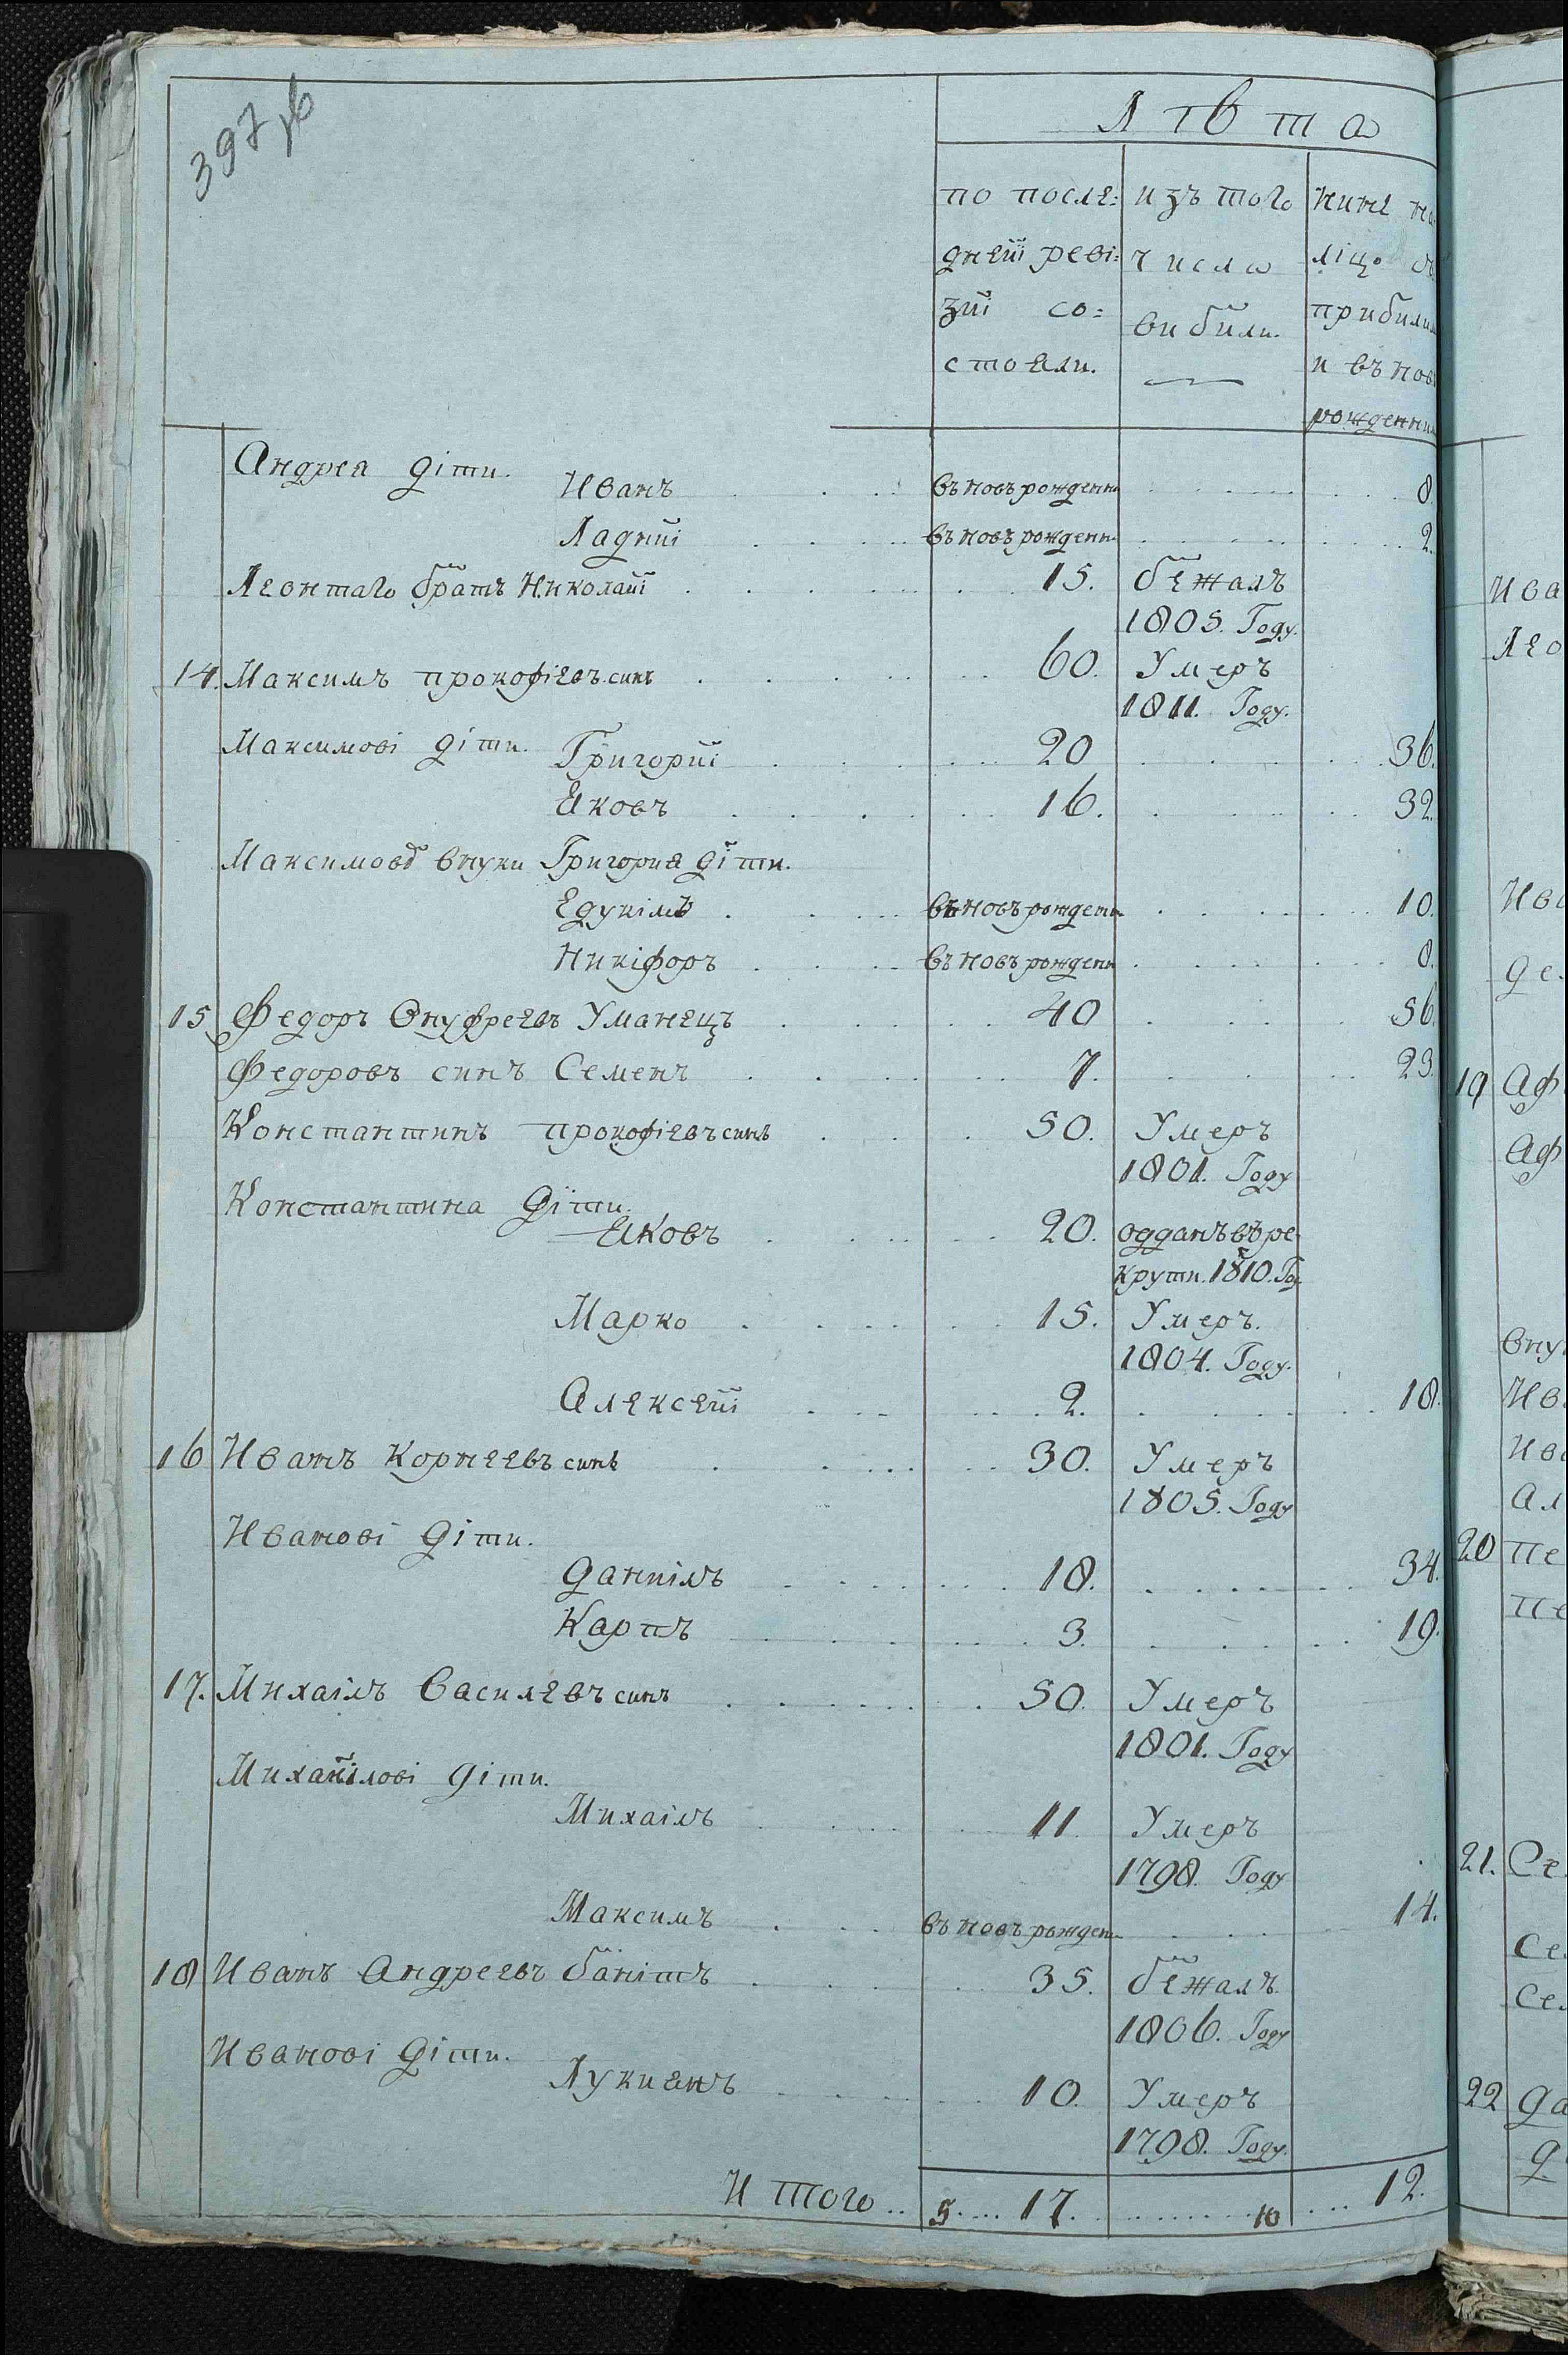 397 об
Лѣта
по после: изъ того нине на
дней реві: числа ліцо
зій со: вибили. прибили
стояли. и въ нов
рожденни
Андрея діти. Иванъ въ новъ рожденн 8.
Ладий въ новъ рожденн. 2.
Леонтаго братъ Николай 15. бежалъ
1805. Году.
14. Максимъ прокофіевъ синъ 60. Умеръ
1811. Году.
Максимові діти. Григорий 20 36.
Яковъ 16. 32.
Максимові внуки Григория діти.
Едукімъ въ новъ рожденн 10.
Никіфоръ въ новъ рожденн 8.
15 Федоръ Онуфреевъ Уманецъ 40 56.
Федоровъ синъ Семенъ 7. 23.
Константинъ прокофіевъ синъ 50. Умеръ
1801. Году
Константина діти.
Яковъ 20. одданъ въ ре
крути. 1810. Го
Марко 15. Умеръ.
1804. Году.
Алексей 2. 18.
16 Иванъ Корнеевъ синъ 30. Умеръ
1805. Году
Иванові діти.
Данніилъ 18. 34.
Карпъ 3. 19.
17. Михаілъ Василевъ синъ 50. Умеръ
1801. Году
Михаилові діти.
Михаілъ 11. Умеръ
1798. Году
Максимъ въ новъ рожден 14.
18 Иванъ Андреевъ банітъ 35. бежалъ.
1806. Году
Иванові діти.
Лукиянъ 10. Умеръ
1798. Году.
Итого 5 17. 10 12.
Ива
Лео
Ива
де
19 Аф
Аф
вну
Ив
Ив
Ал
20 пе
пе
21. Се
Се
Се
22 да
д